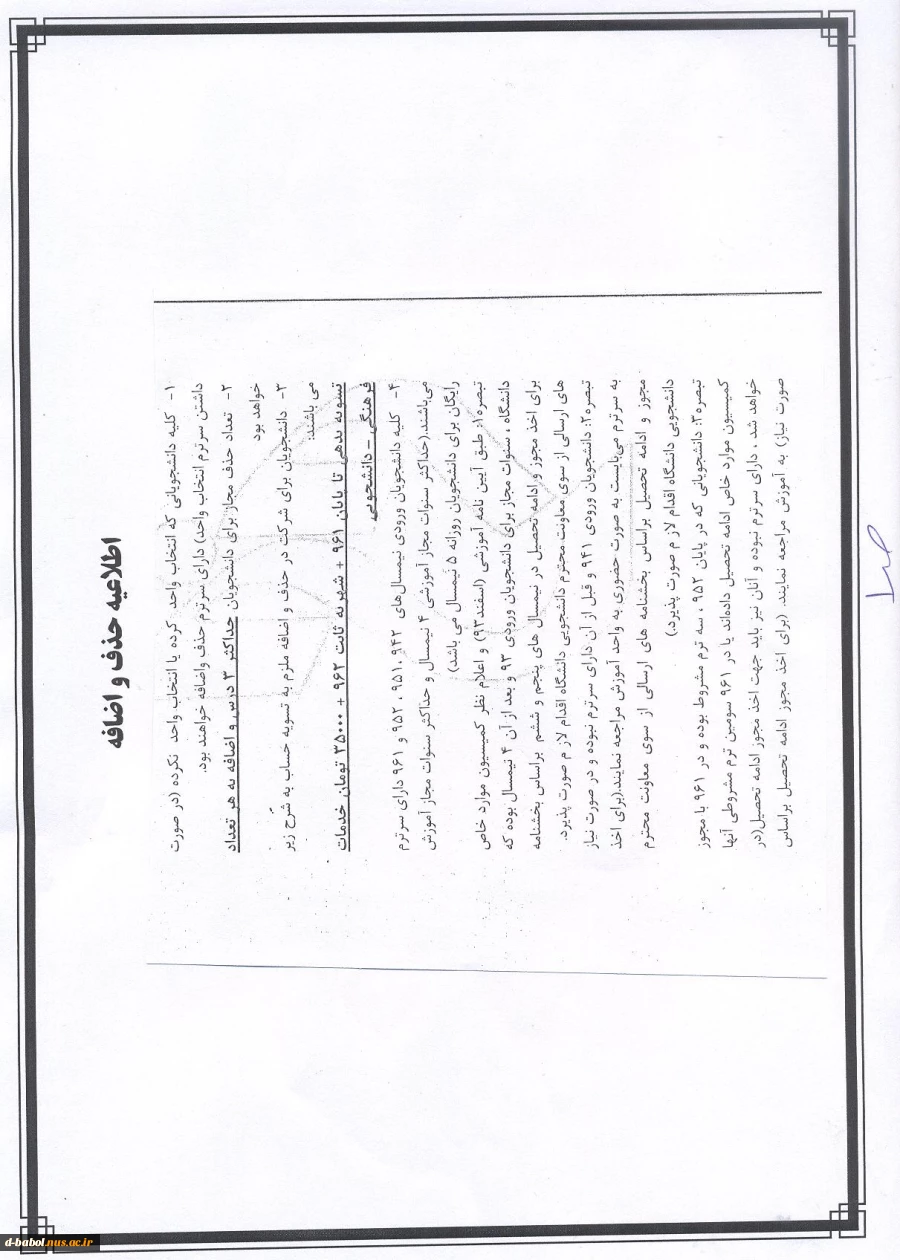 اطلاعیه حذف و اضافه
۱- کلیه دانشجویانی که انتخاب واحد کرده یا انتخاب واحد نکرده (در صورت
داشتن سرترم انتخاب واحد) دارای سرترم حذف واضافه خواهند بود.
۲- تعداد حذف مجاز برای دانشجویان حداکثر ۳ درس و اضافه به هر تعداد
خواهد بود
۳- دانشجویان برای شرکت در حذف و اضافه ملزم به تسویه حساب به شرح زیر
می باشند:
تسویه بدهی تا پایان ۹۶۱ + شهریه ثابت ۹۶۲ + ۳۵۰۰۰ تومان خدمات
فرهنگی – دانشجویی
۴- کلیه دانشجویان ورودی نیمسال‌های ۹۴۲، ۹۵۱، ۹۵۲ و ۹۶۱ دارای سرترم
می‌باشند.(حداکثر سنوات مجاز آموزشی ۴ نیمسال و حداکثر سنوات مجاز آموزش
رایگان برای دانشجویان روزانه ۵ نیمسال می باشد)
تبصره۱: طبق آیین نامه آموزشی (اسفند۹۳) و اعلام نظر کمیسیون موارد خاص
دانشگاه ، سنوات مجاز برای دانشجویان ورودی ۹۳ و بعد از آن ۴ نیمسال بوده که
برای اخذ مجوز و ادامه تحصیل در نیمسال های پنجم و ششم براساس بخشنامه
های ارسالی از سوی معاونت محترم دانشجویی دانشگاه اقدام لاز م صورت پذیرد.
تبصره۲: دانشجویان ورودی ۹۴۱ و قبل از آن دارای سرترم نبوده و در صورت نیاز
به سرترم می‌بایست به صورت حضوری به واحد آموزش مراجعه نمایند.(برای اخذ
مجوز و ادامه تحصیل براساس بخشنامه های ارسالی از سوی معاونت محترم
دانشجویی دانشگاه اقدام لاز م صورت پذیرد.)
تبصره۳: دانشجویانی که در پایان ۹۵۲ ، سه ترم مشروط بوده و در ۹۶۱ با مجوز
کمیسیون موارد خاص ادامه تحصیل داده‌اند یا در ۹۶۱ سومین ترم مشروطی آنها
خواهد شد ، دارای سرترم نبوده و آنان نیز باید جهت اخذ مجوز ادامه تحصیل(در
صورت نیاز) به آموزش مراجعه نمایند. (برای اخذ مجوز ادامه تحصیل براساس
ص۱
d-babol.nus.ac.ir